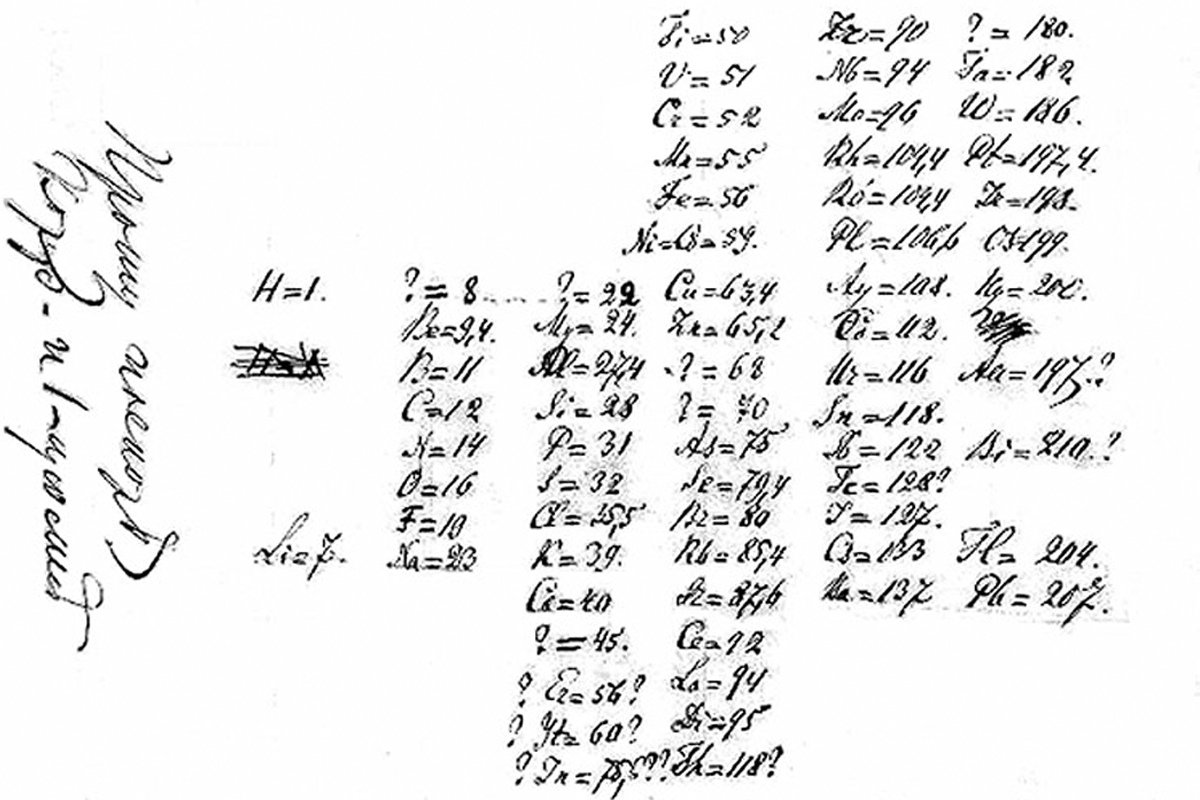 Ti=50 Zr=90 ?=180.
V=51 Nb=94 Ta=182
Cr=52 Mo=96 W=186.
Mn=55 Rh=104,4 Pt=197,4.
Fe=56 Ru=104,4 Ir=198.
Ni=Co=59. Pl=106,6 Os=199.
H=1. ?=8 ?=22 Cu=63,4 Ag=108. Hg=200.
Be=9,4. Mg=24. Zn=65,2 Cd=112.
B=11 Al=27,4 ?=68 Ur=116 Au=197?
C=12 Si=28 ?=70 Sn=118.
N=14 P=31 As=75 Sb=122 Bi=210?
O=16 S=32 Se=79,4 Te=128?
F=19 Cl=35,5 Br=80 J=127.
Li=7. Na=23 K=39. Rb=85,4 Cs=133 Tl=204.
Ca=40 Sr=87,6 Ba=137 Pb=207.
?=45. Ce=92
? Er=56? La=94
? Yt=60? Di=95
? In=75,6?? Th=118?